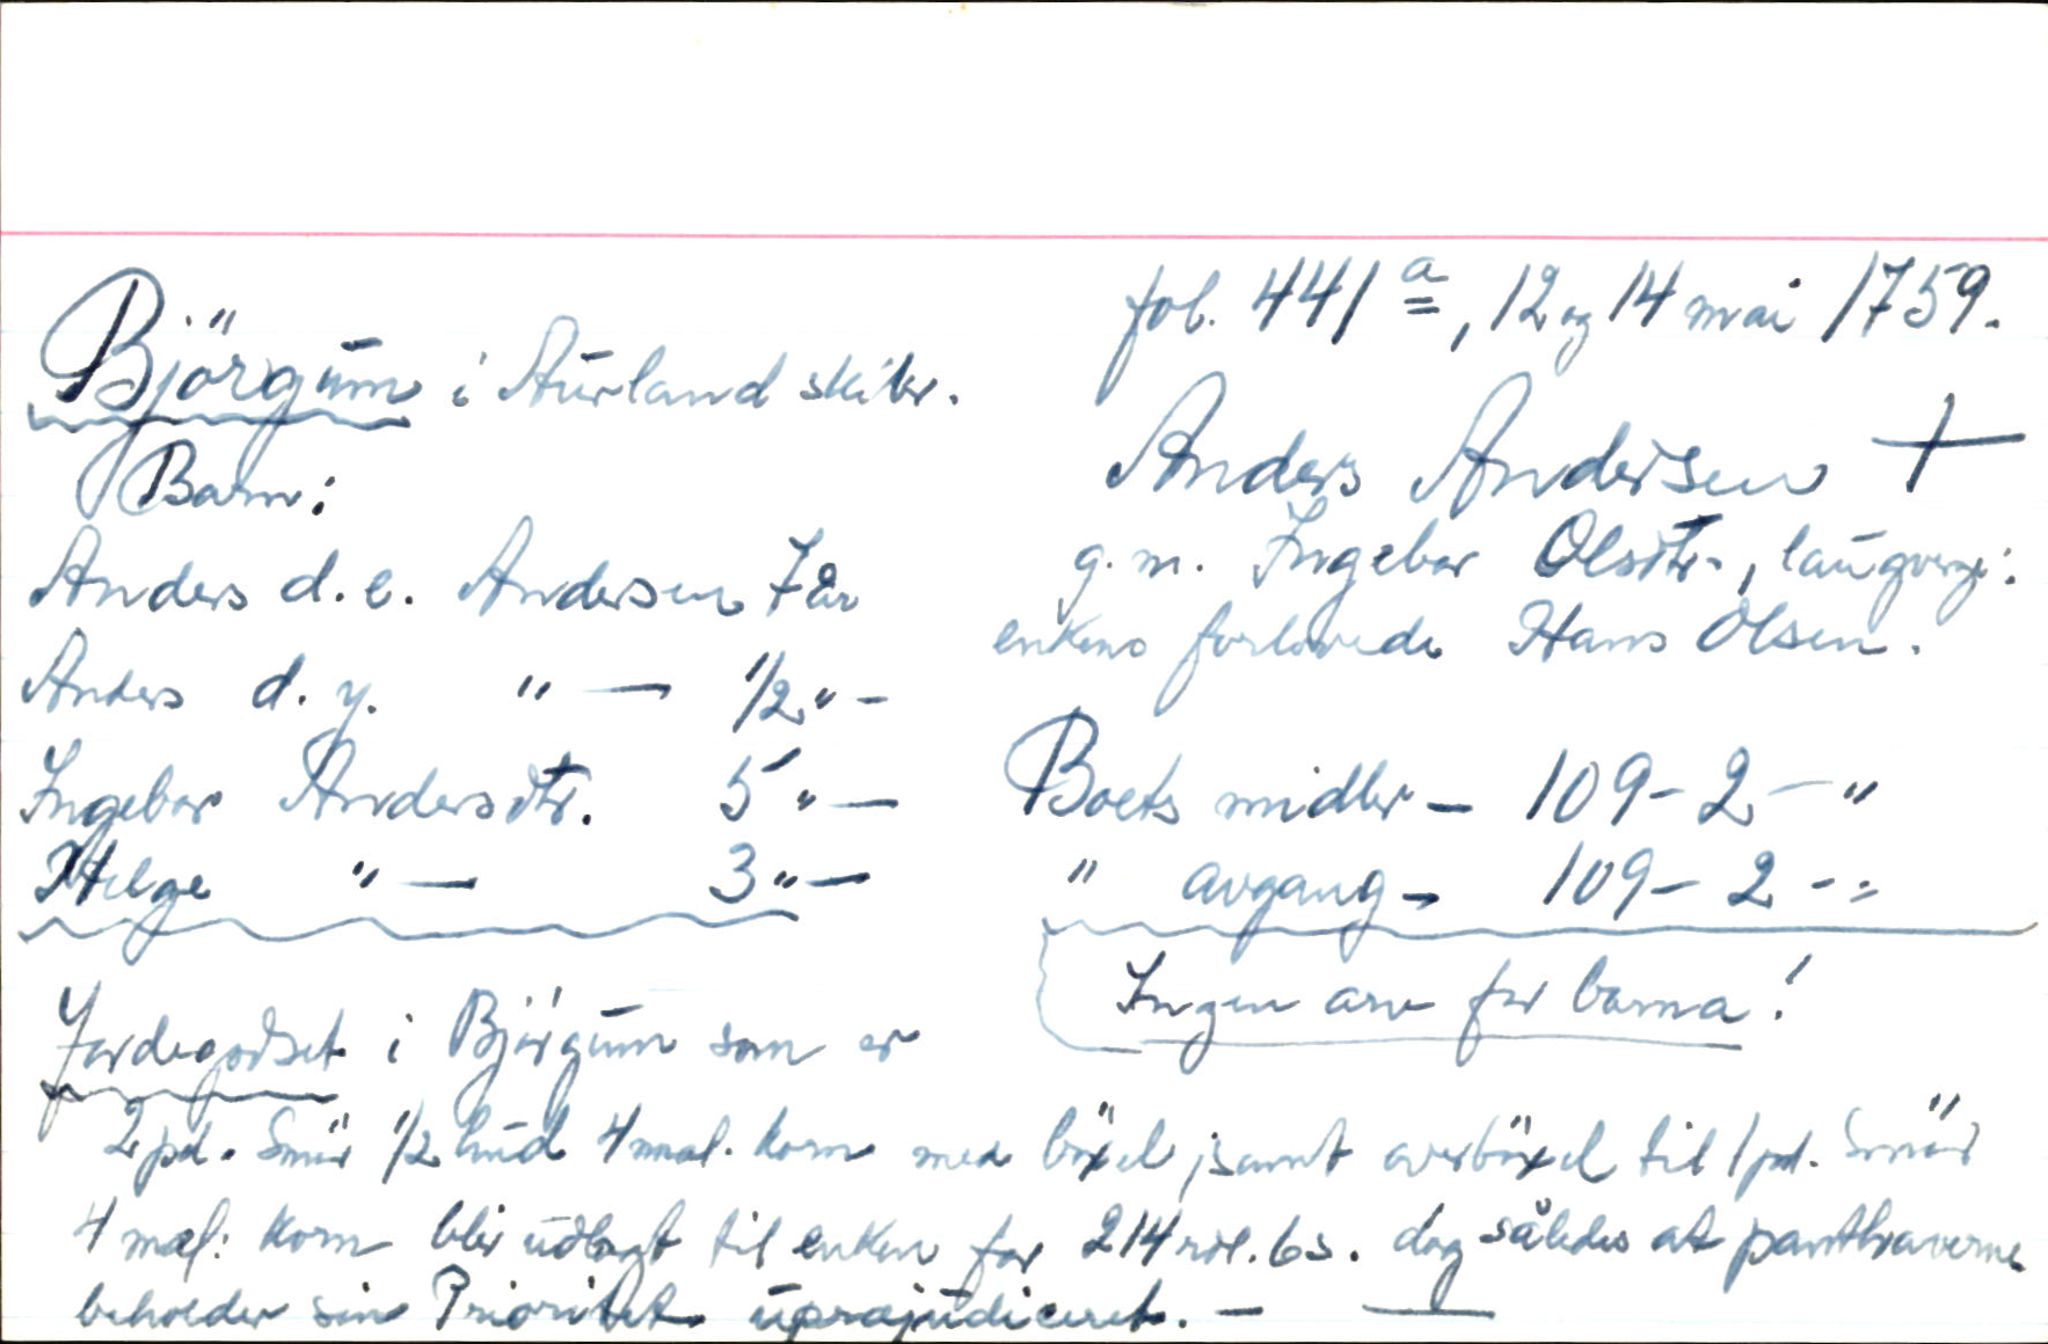 fol. 441 a, 12 og 14 mai 1759.
Björgum i Aurland skibr.
Anders Andersen +
g.m. Ingebor Olsdtr., laugverge:
enkens forlovede Hans Olsen.
Barn:
Anders d.e. Andersen 7 år
Anders d.y. " — 1/2 " -
Ingebor Andersdtr. 5 " —
Helge " — 3 " —
Boets midler - 109 - 2 - "
" avgang - 109 - 2 - "
Ingen arv for barna!
Jordegodset i Björgum som er
2 pd. Smör 1/2 hud 4 mæl. korn med böxel, samt overböxel til 1 pd. Smör
4 mæl: korn blir udlagt til enken for 214 rdl. 6 s. dog således at panthaverne
beholder sin Prioritet upræjudiceret. —